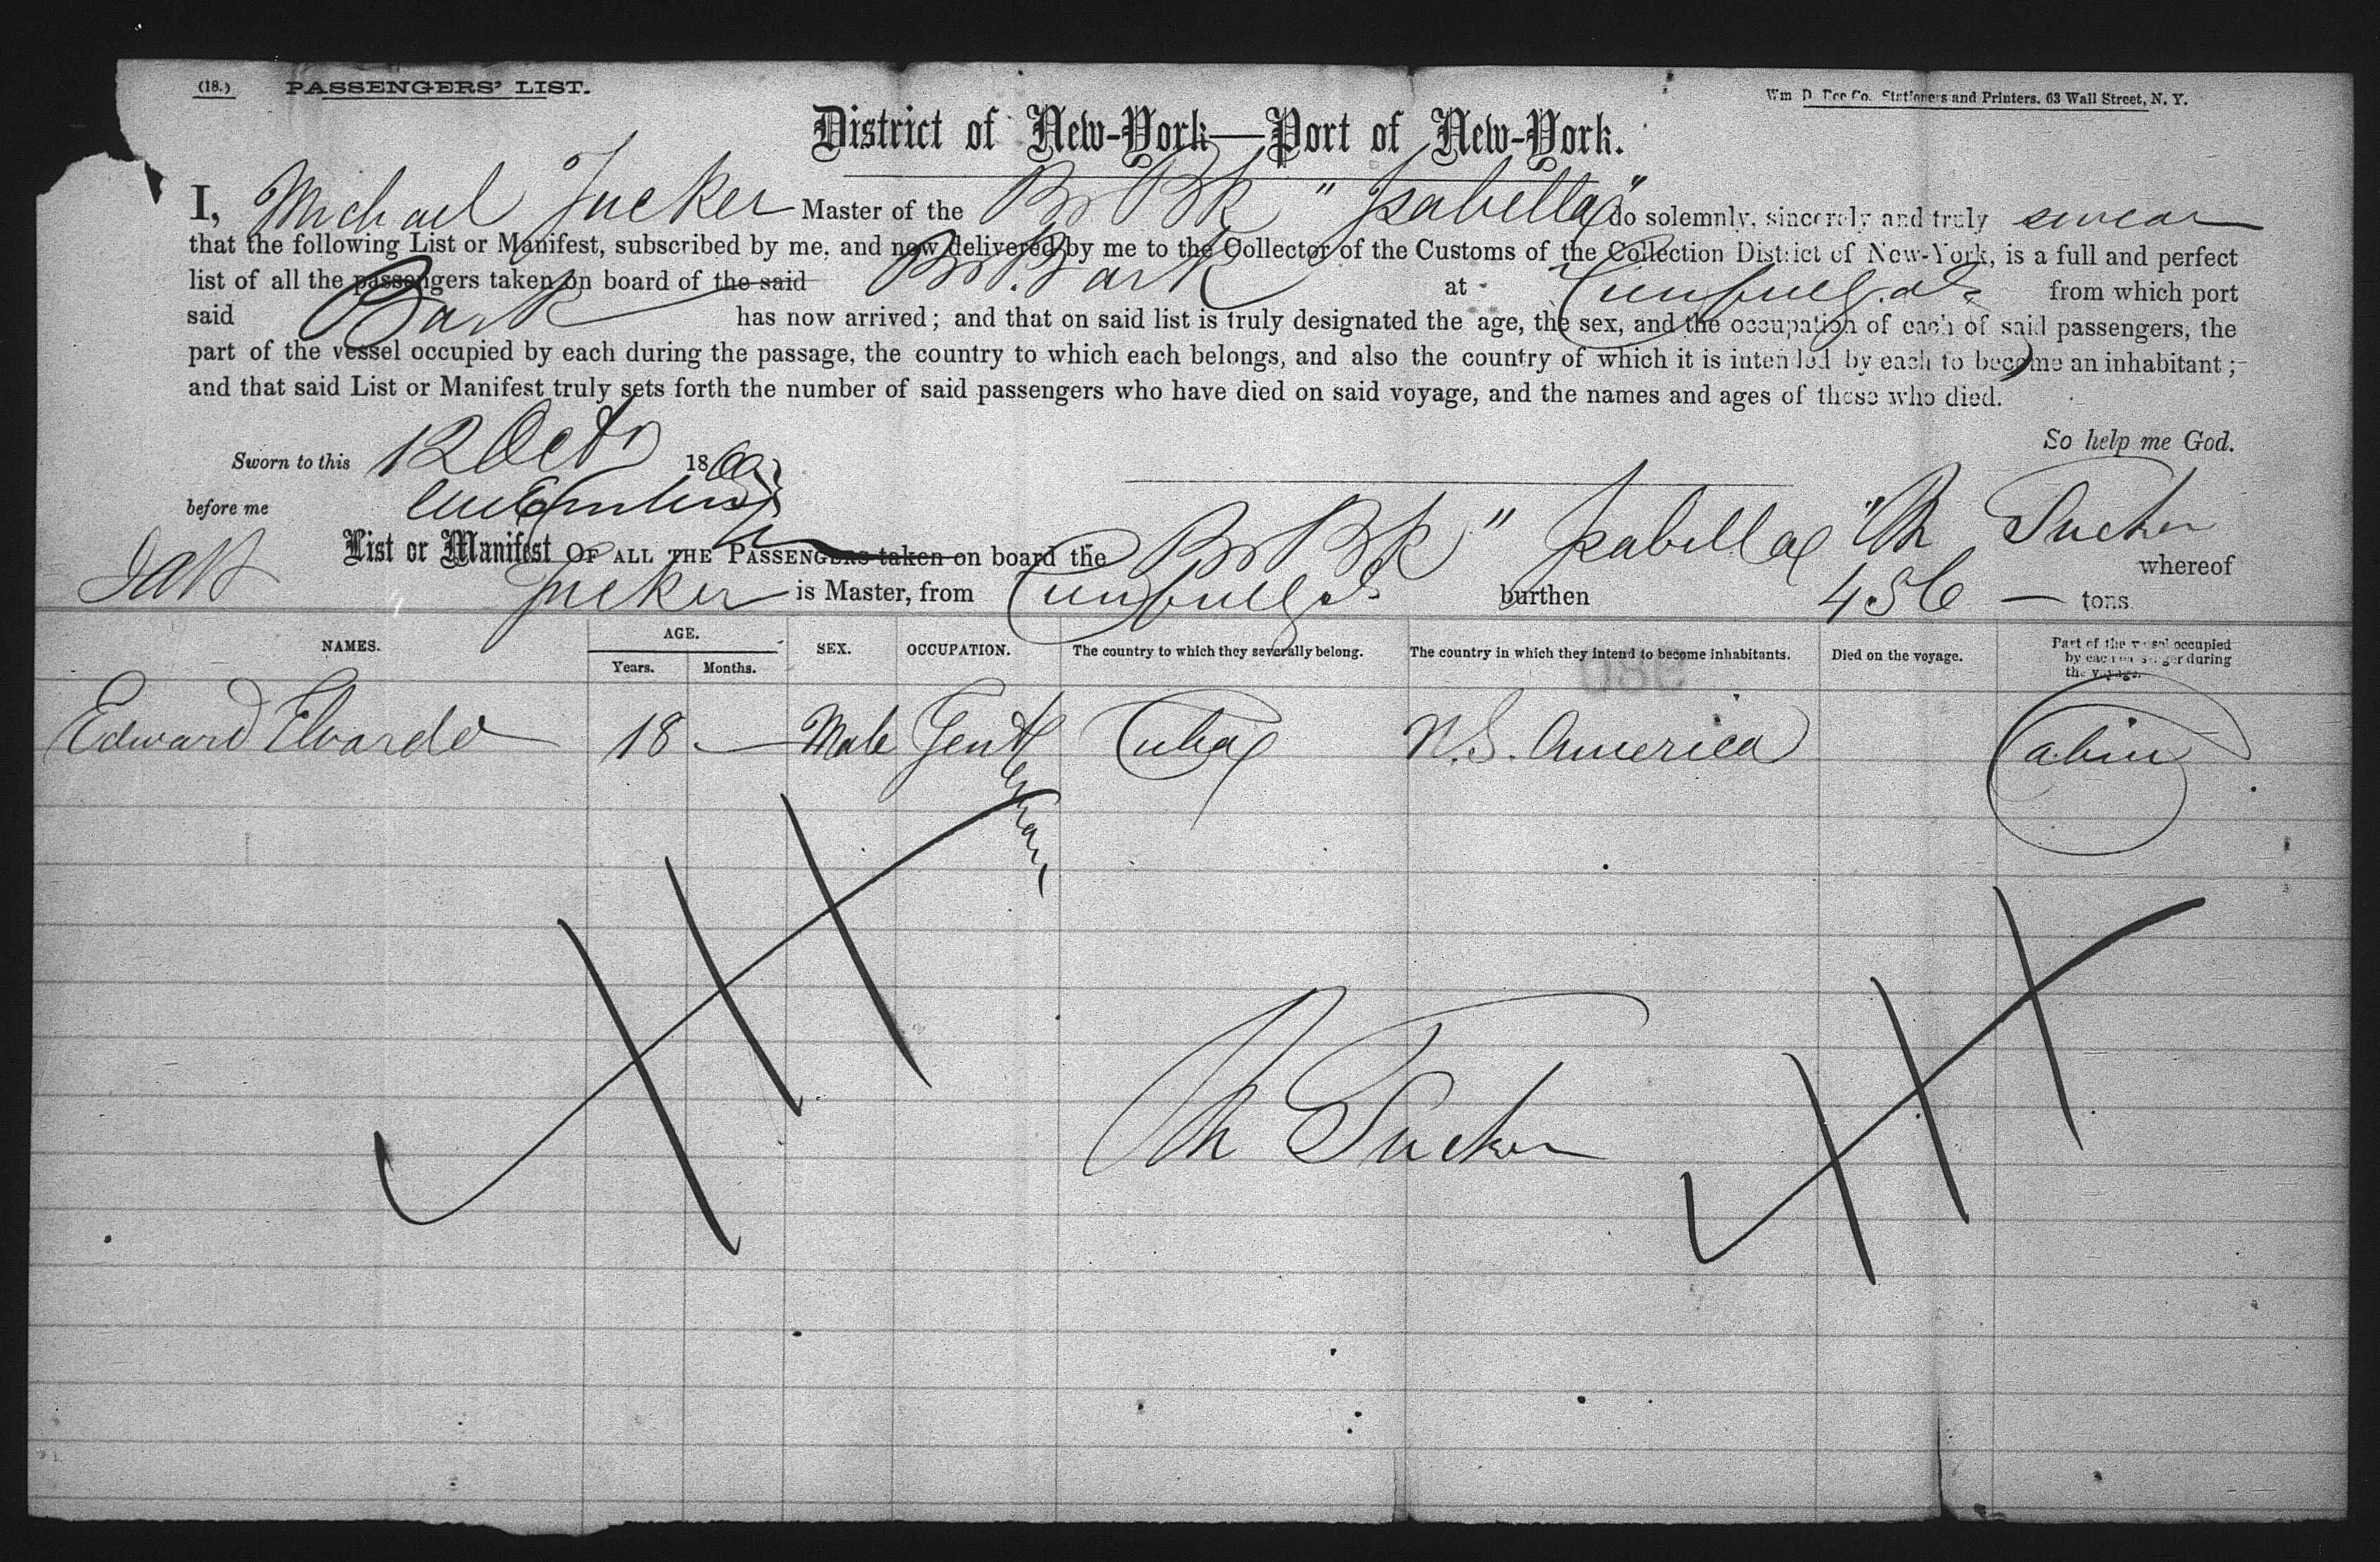 (18.) PASSENGERS' LIST.
Wm D. Roe Co. Stationers and Printers. 63 Wall Street, N. Y.
District of New-York—Port of New-York.
I, Michael Tucker Master of the Br Bk "Isabella" do solemnly, sincerely and truly swear
that the following List or Manifest, subscribed by me, and now delivered by me to the Collector of the Customs of the Collection District of New-York, is a full and perfect
list of all the passengers taken on board of the said Br. Bark at Cienfuegos from which port
said Bark has now arrived; and that on said list is truly designated the age, the sex, and the occupation of each of said passengers, the
part of the vessel occupied by each during the passage, the country to which each belongs, and also the country of which it is intended by each to become an inhabitant;
and that said List or Manifest truly sets forth the number of said passengers who have died on said voyage, and the names and ages of those who died.
So help me God.
Sworn to this 12 Octr 18
before me
M Tucker
List or Manifest OF ALL THE PASSENGERS taken on board the Br Bk "Isabella" whereof
Tucker is Master, from Cienfuegos burthen 456 — tons
NAMES. AGE. SEX. OCCUPATION. The country to which they severally belong. The country in which they intend to become inhabitants. Died on the voyage. Part of the vessel occupied by each passenger during the voyage.
Years. Months.
Edward Elvarde 18 — Male Gentleman Cuba N.S. America Cabin
M Tucker